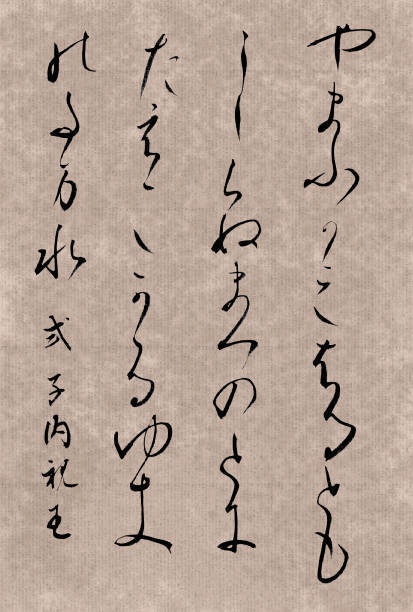 やまふかみはるとも
しらぬまつのとに
たえ〴〵かゝるゆき
のたま水 式子内親王